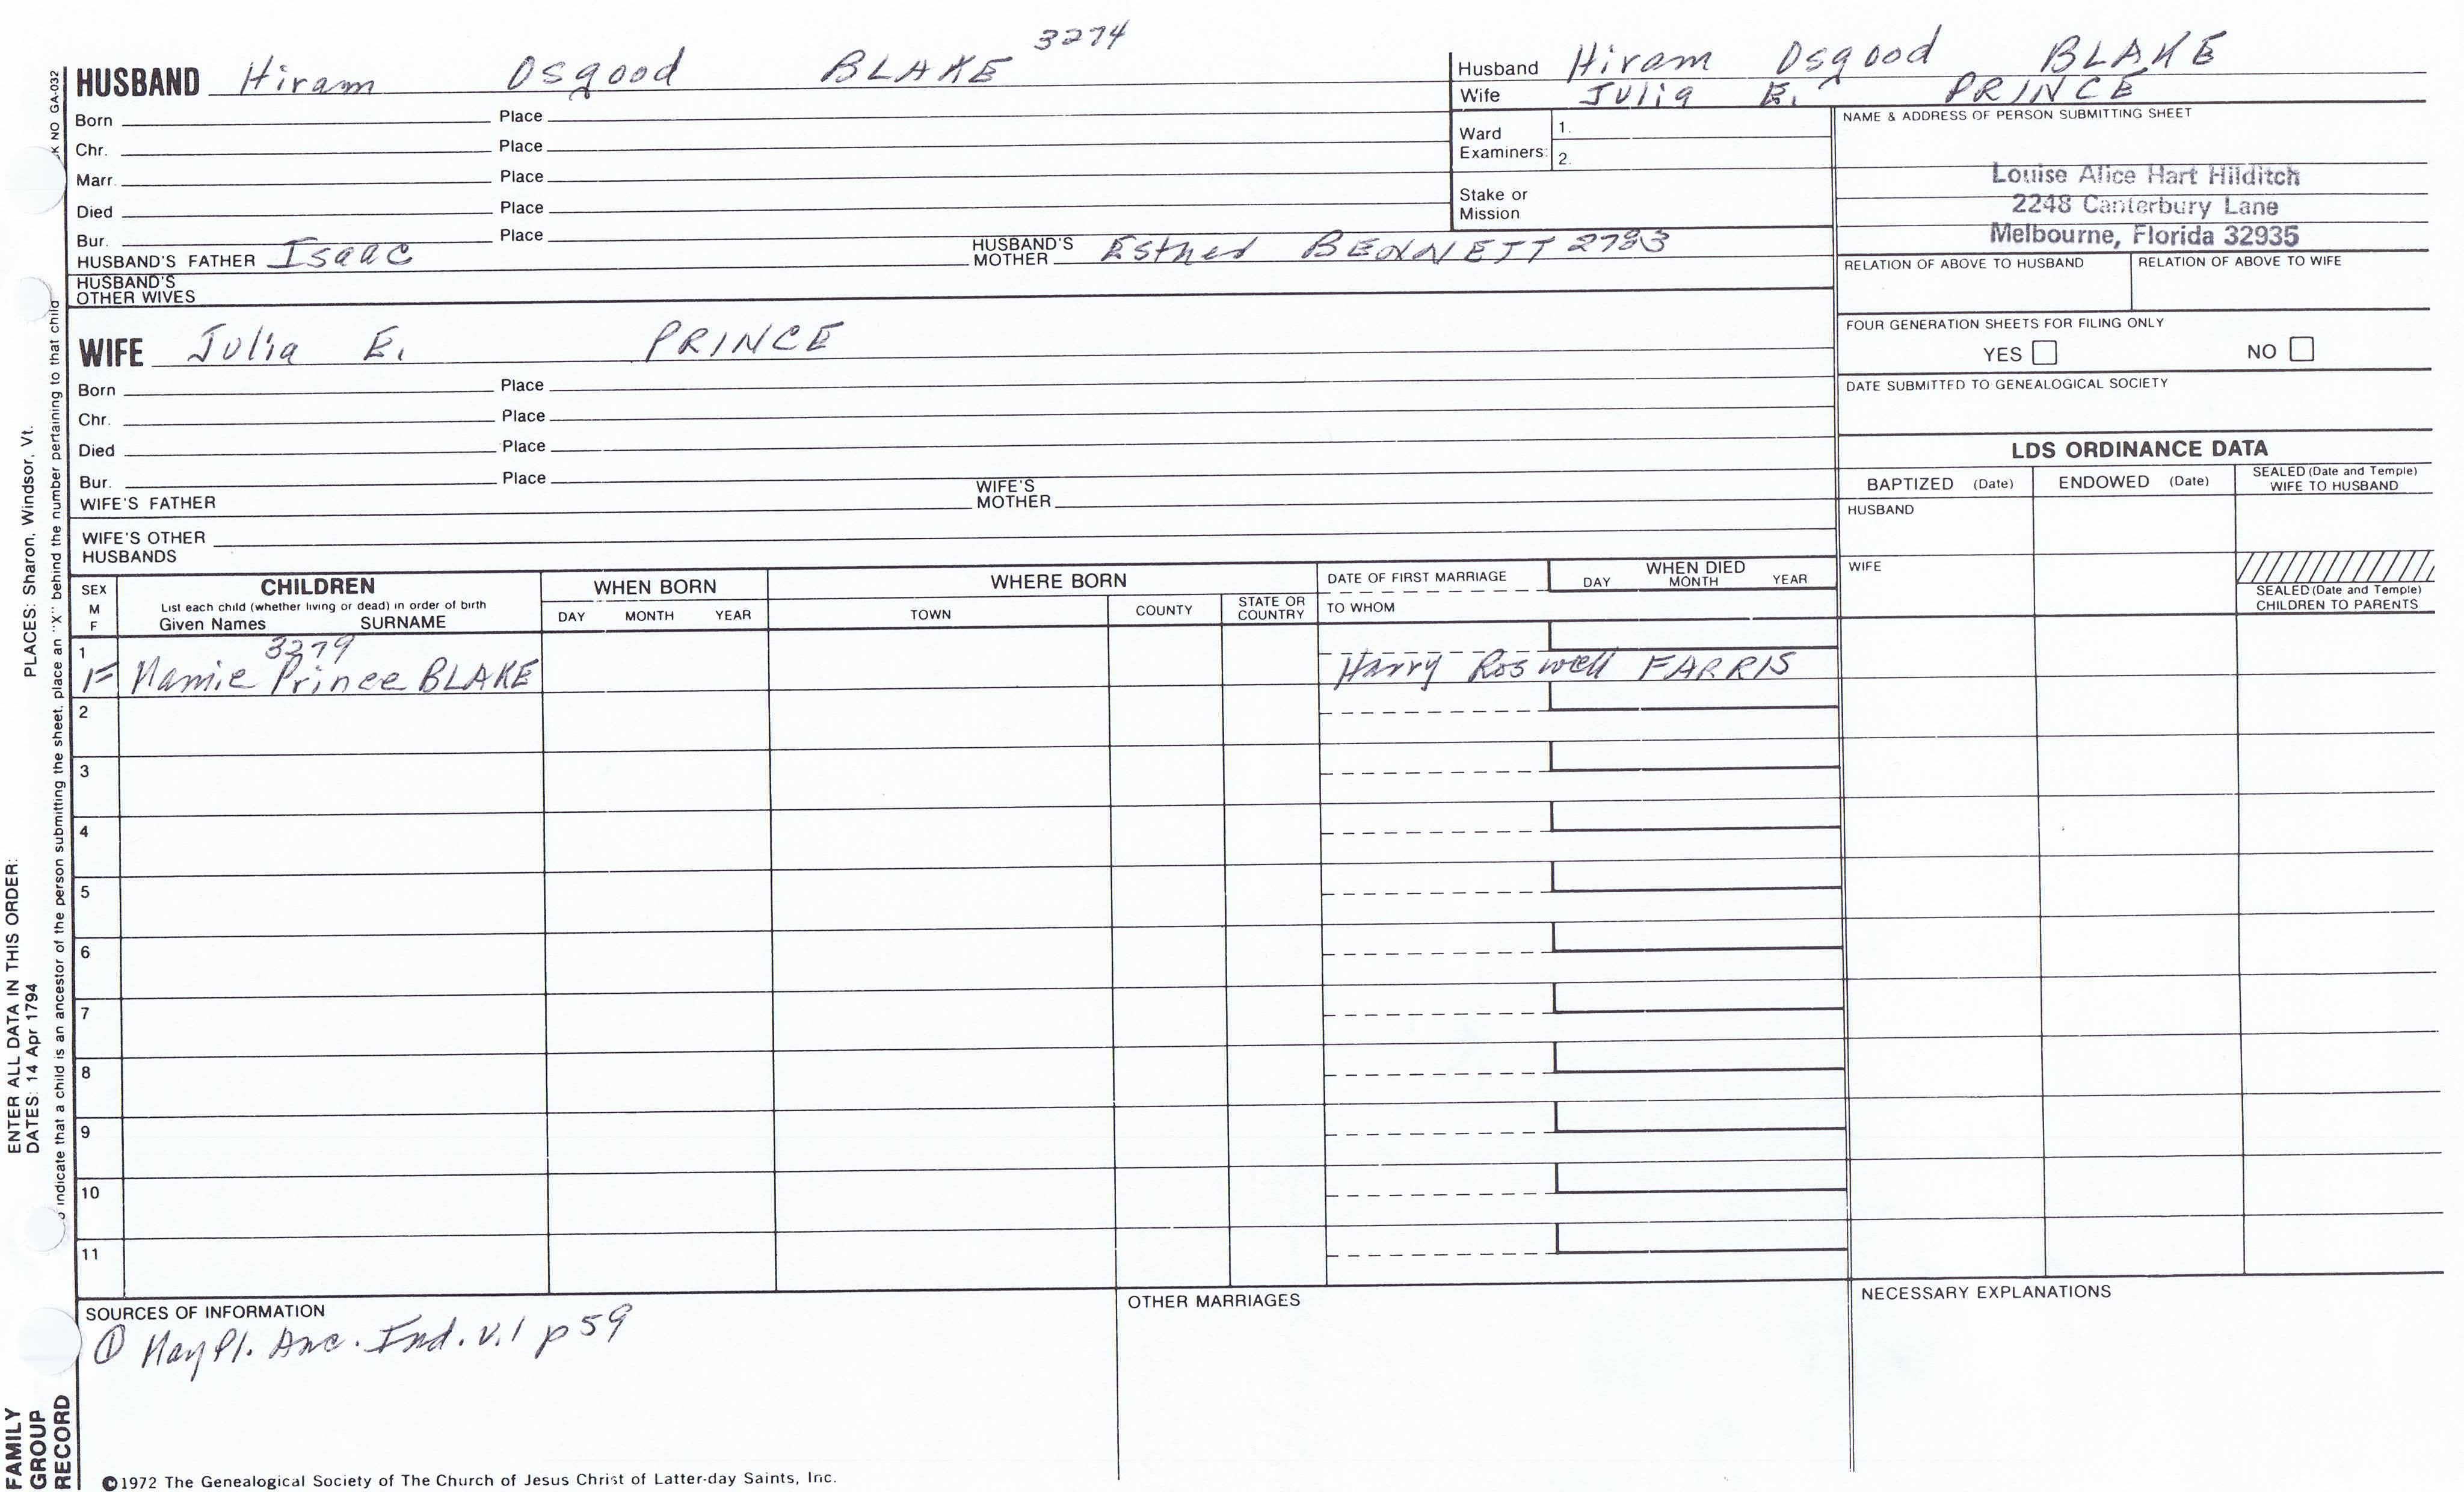 3274
HUSBAND Hiram Osgood BLAKE
Born Place
Chr. Place
Marr. Place
Died Place
Bur. Place
HUSBAND'S FATHER Isaac HUSBAND'S MOTHER Esther BENNETT 2783
HUSBAND'S OTHER WIVES
WIFE Julia E. PRINCE
Born Place
Chr. Place
Died Place
Bur. Place
WIFE'S FATHER WIFE'S MOTHER
WIFE'S OTHER HUSBANDS
Husband Hiram Osgood BLAKE
Wife Julia E. PRINCE
Ward Examiners: 1.
2.
Stake or Mission
NAME & ADDRESS OF PERSON SUBMITTING SHEET
Louise Alice Hart Hilditch
2248 Canterbury Lane
Melbourne, Florida 32935
RELATION OF ABOVE TO HUSBAND RELATION OF ABOVE TO WIFE
FOUR GENERATION SHEETS FOR FILING ONLY
YES NO
DATE SUBMITTED TO GENEALOGICAL SOCIETY
LDS ORDINANCE DATA
BAPTIZED (Date) ENDOWED (Date) SEALED (Date and Temple) WIFE TO HUSBAND
HUSBAND
WIFE
SEALED (Date and Temple)
CHILDREN TO PARENTS
SEX M F
CHILDREN
List each child (whether living or dead) in order of birth
Given Names SURNAME
WHEN BORN
DAY MONTH YEAR
WHERE BORN
TOWN COUNTY STATE OR COUNTRY
DATE OF FIRST MARRIAGE
TO WHOM
WHEN DIED
DAY MONTH YEAR
3279
1 F Mamie Prince BLAKE Harry Roswell FARRIS
2
3
4
5
6
7
8
9
10
11
SOURCES OF INFORMATION
① Mayfl. Anc. Ind. v.1 p 59
OTHER MARRIAGES
NECESSARY EXPLANATIONS
©1972 The Genealogical Society of The Church of Jesus Christ of Latter-day Saints, Inc.
FAMILY
GROUP
RECORD
ENTER ALL DATA IN THIS ORDER:
DATES: 14 Apr 1794 PLACES: Sharon, Windsor, Vt.
indicate that a child is an ancestor of the person submitting the sheet, place an "X" behind the number pertaining to that child
NO GA-032